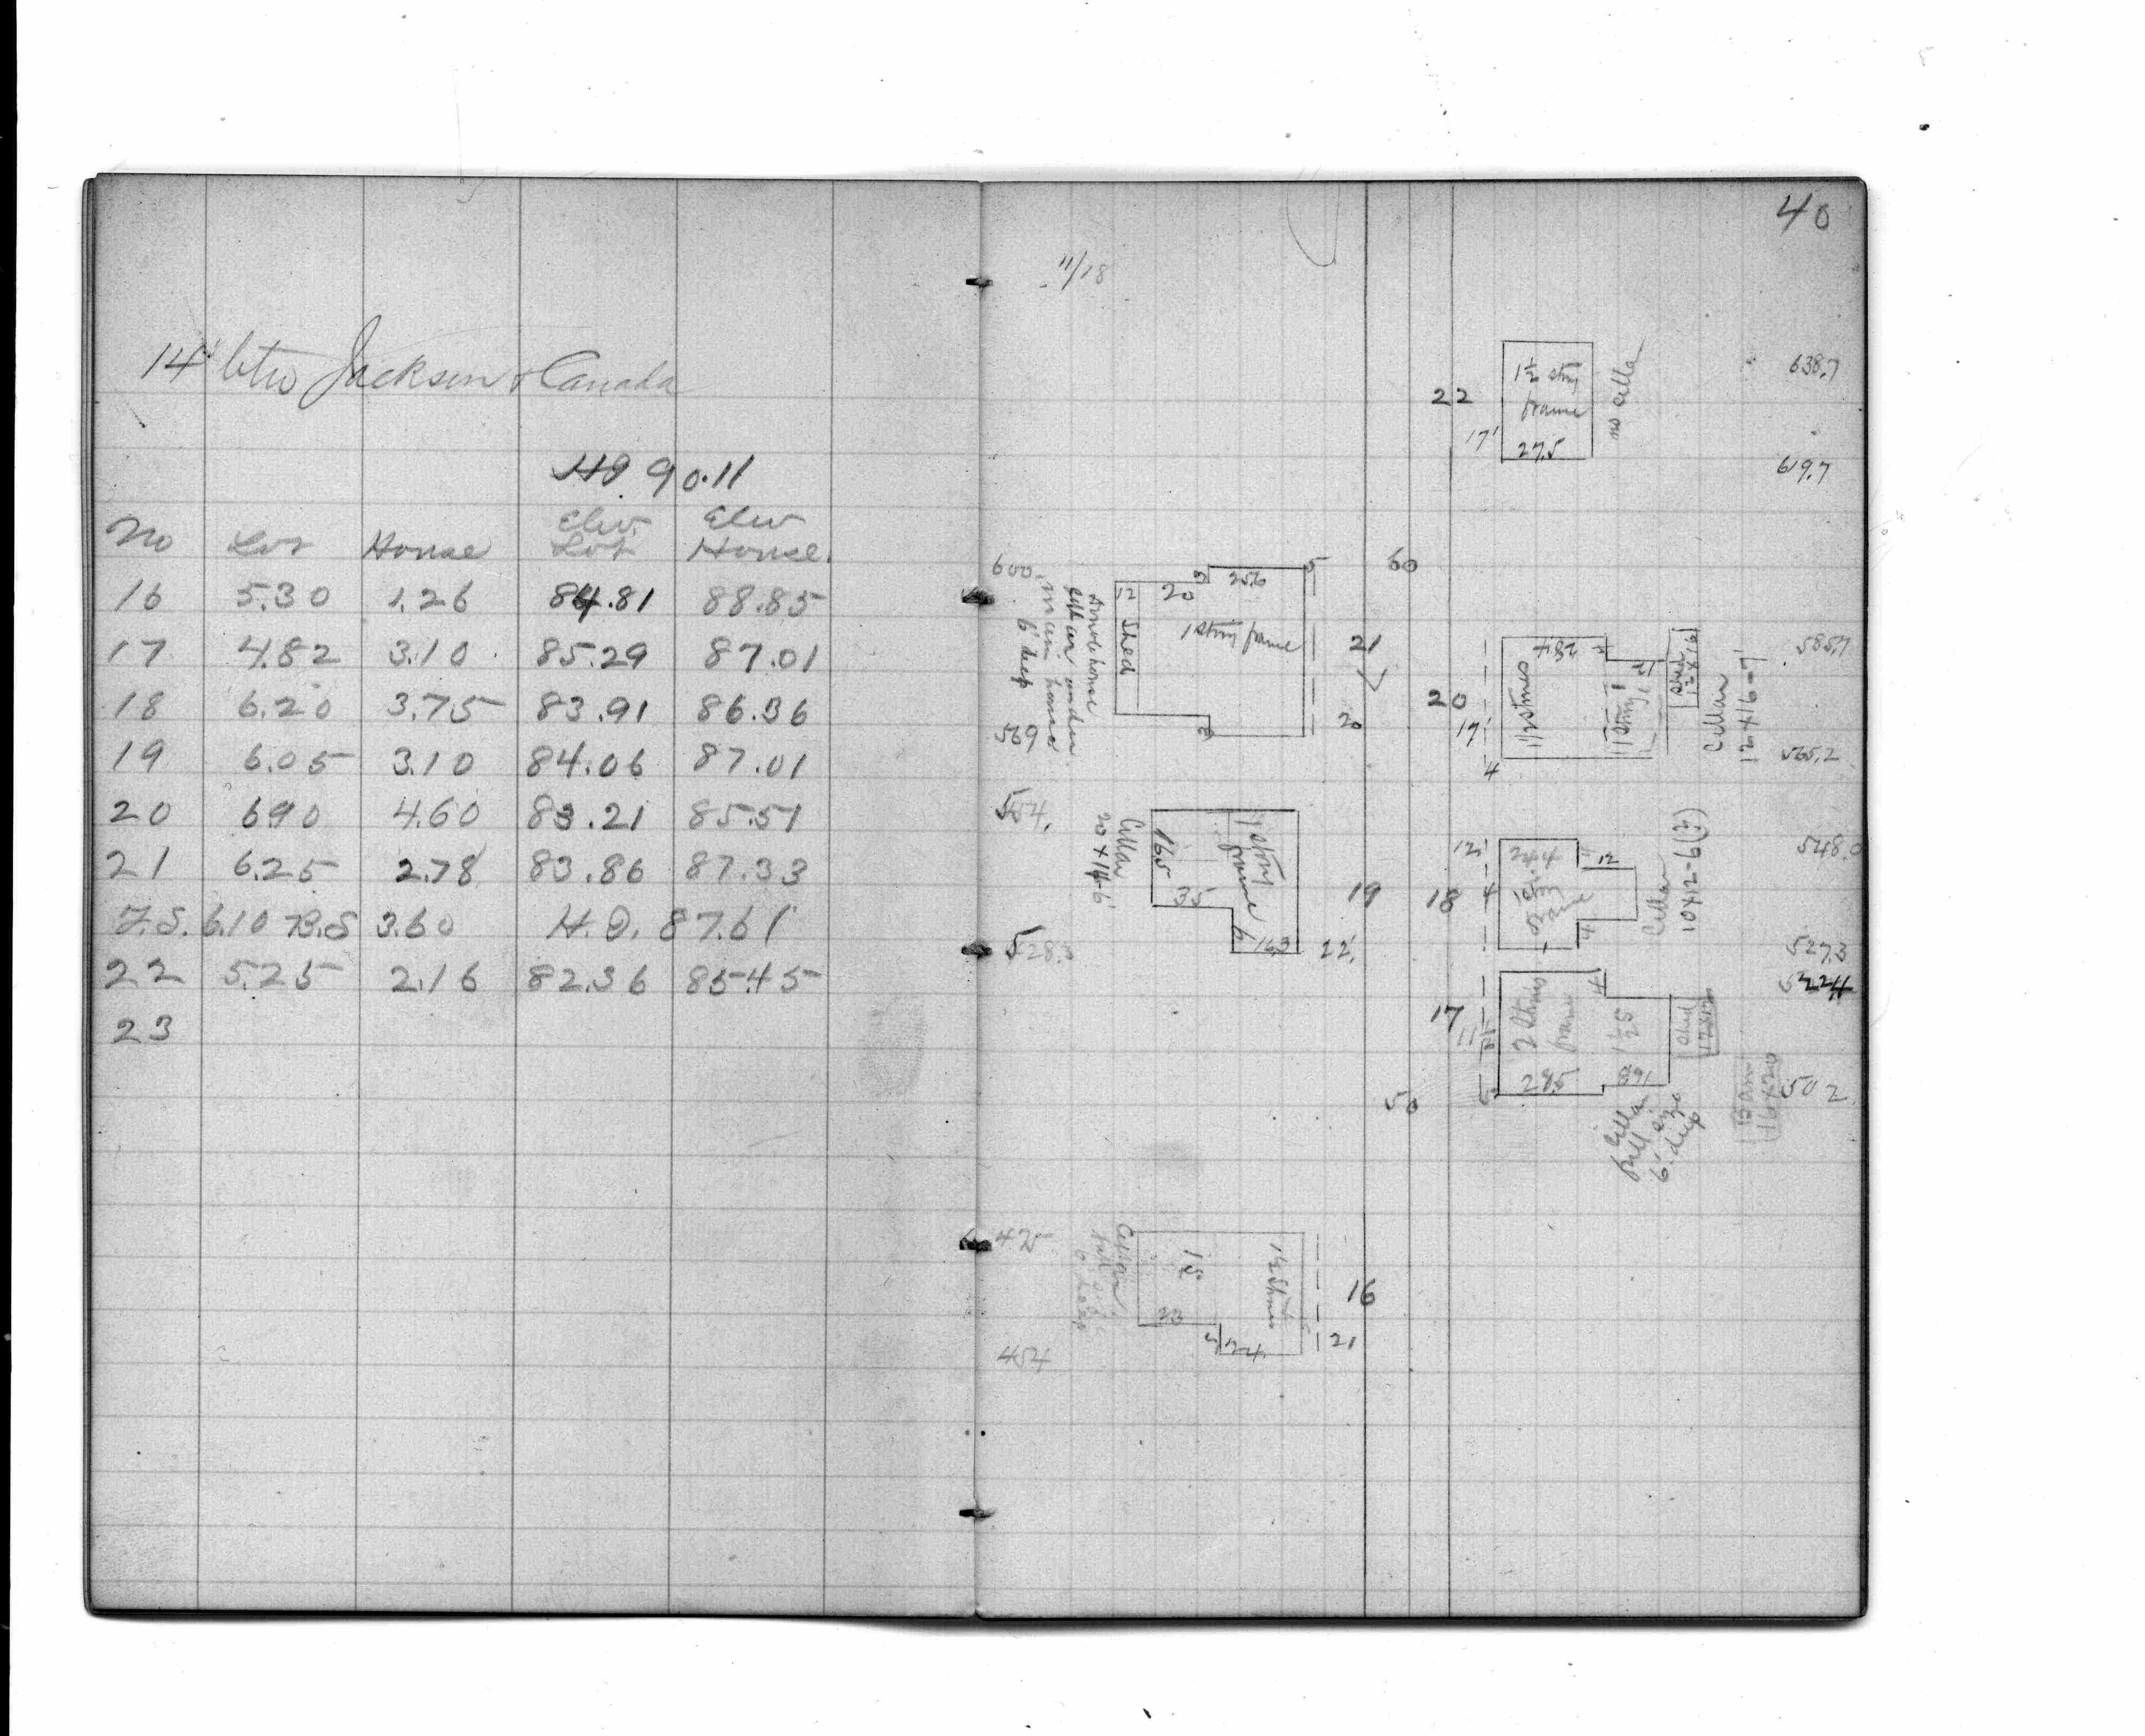 14' btw Jackson & Canada
HI 90.11
No Lot House Elev. Lot Elev House.
16 5.30 1.26 84.81 88.85
17 4.82 3.10 85.29 87.01
18 6.20 3.75 83.91 86.36
19 6.05 3.10 84.06 87.01
20 690 4.60 83.21 85.51
21 6.25 2.78 83.86 87.33
F.S. 6.10 B.S 3.60 H.I. 87.61
22 5.25 2.16 82.36 85.45
23
40
11/18
22
17'
1½ story
frame
27.5
no cella
638.7
619.7
600.
569
cellar under
main house
6' deep
12
Shed
20
3
25.6
5
1 Story frame
3
60
21
20
20
17'
4
1½ stories
28.4
1 story
Shed
12x16
Cellar
12x16-7'
585.7
565.2
554.
528.3
Cellar
20x14-6'
16.5
35
1 story
frame
16.3
19
22'
12'
18
4
12
4
Cellar
10x12-6(?)
548.0
527.3
522.4
17
11
50
2 Stories
frame
29.5
4
Shed
Cellar
full size
6' deep
Barn
16x20
502
425
454
Cellar
23
1½ Stories
5
24
16
21